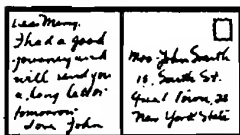 Dear Mary,
I had a good
journey and
will send you
a long letter
tomorrow.
Love John
Mrs John Smith
15, South St.
New York State